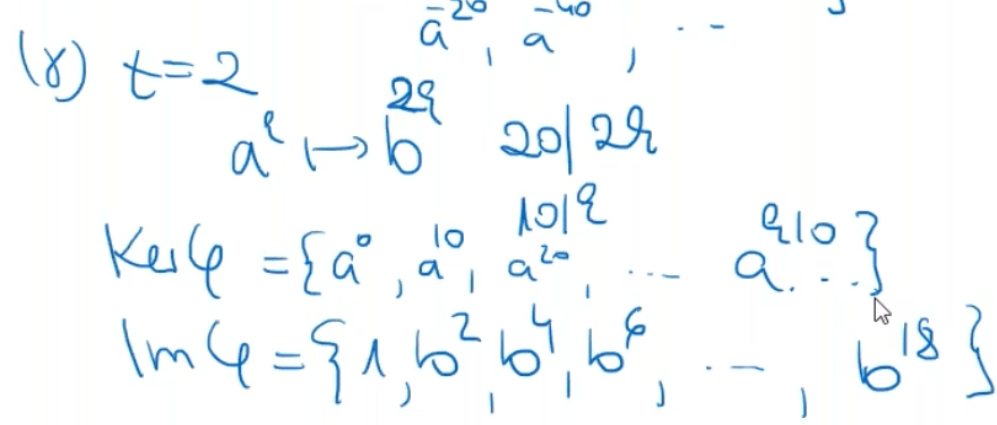 a⁻²⁰, a⁻⁴⁰, ...
(γ) t=2
aˡ ↦ b²ˡ 20|2ˡ
10|ˡ
Ker φ = {a⁰, a¹⁰, a²⁰, ... a^{ˡ10}...}
Im φ = {1, b², b⁴, b⁶, ..., b¹⁸}